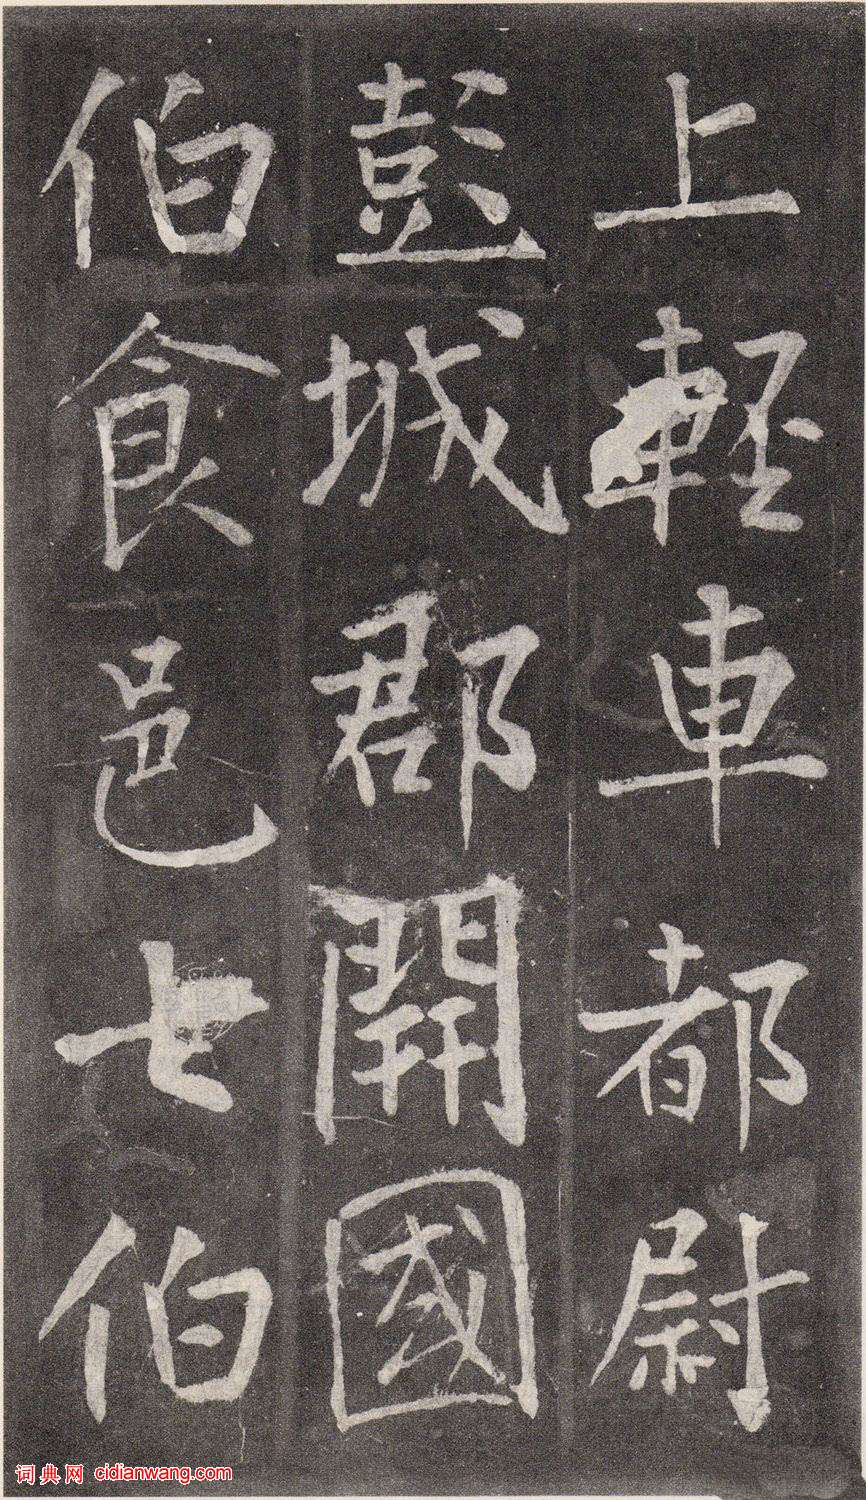 上輕車都尉
彭城郡開國
伯食邑七伯
词典网 cidianwang.com